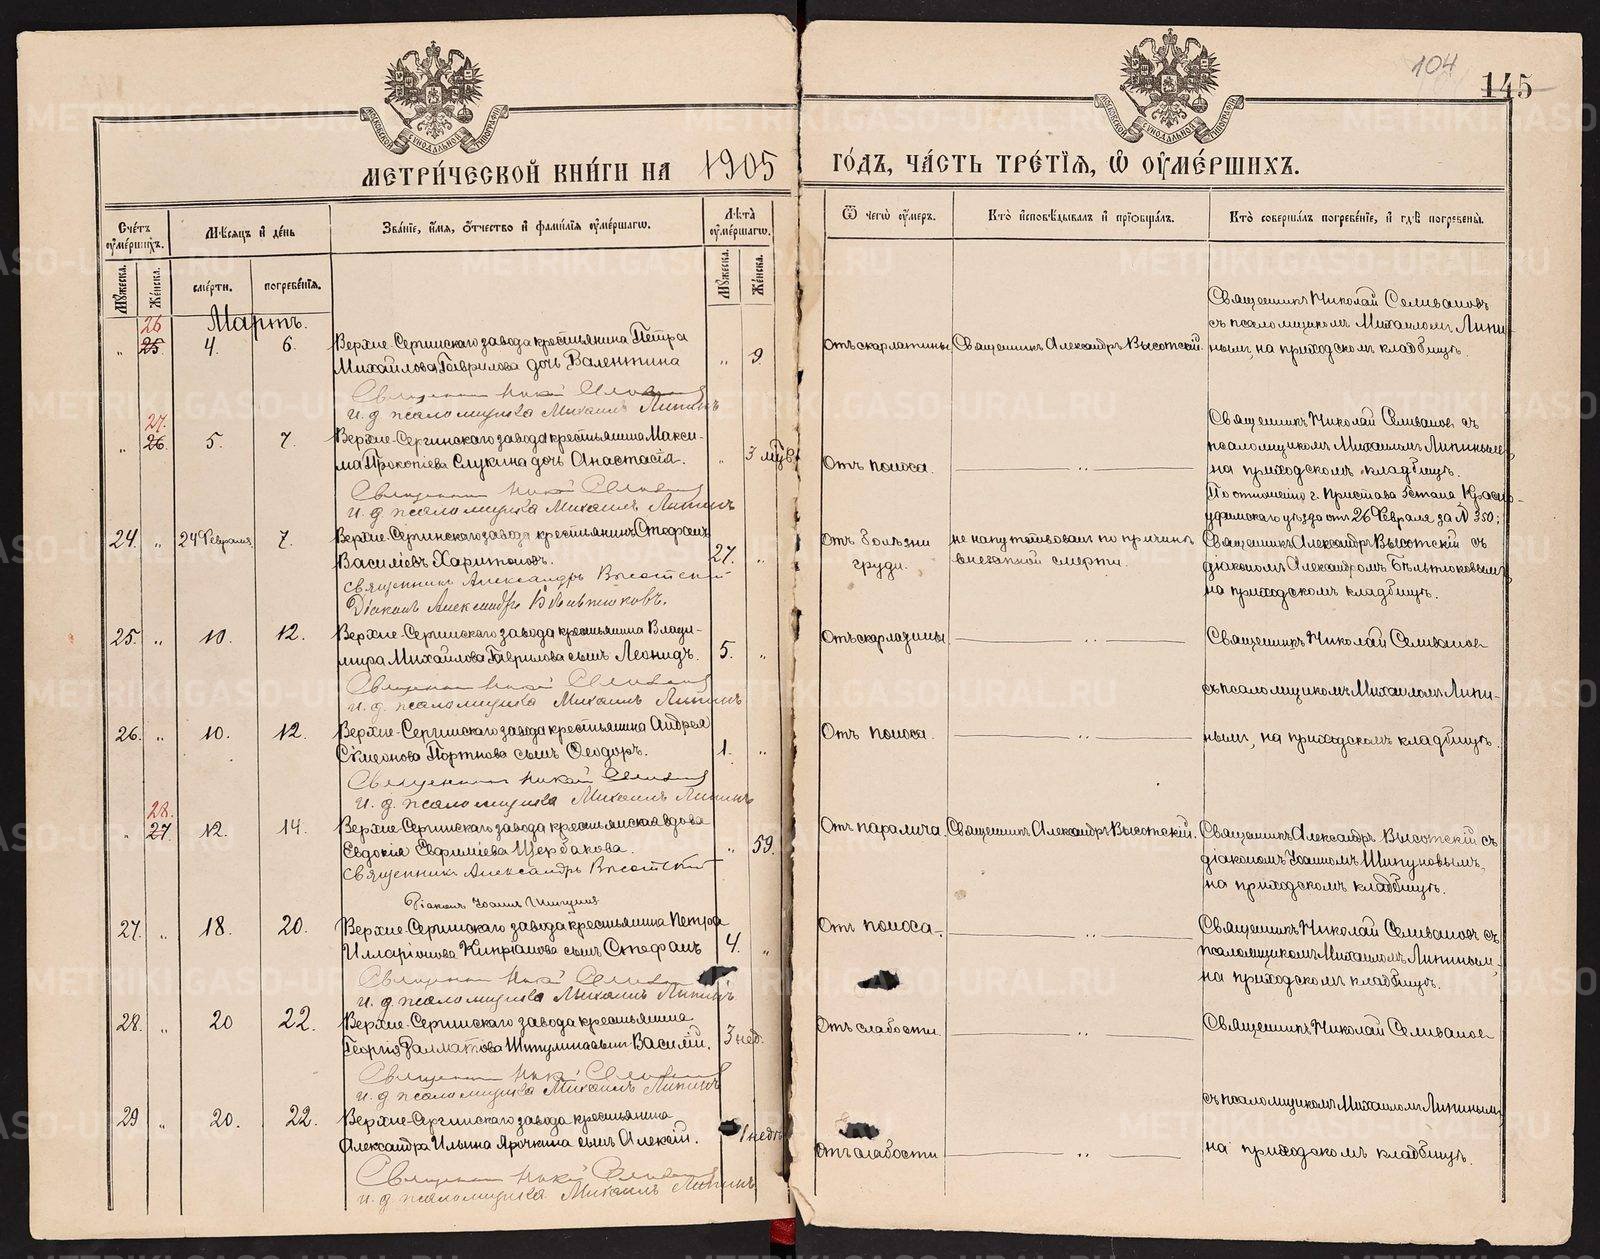 104
145
МЕТРИ́ЧЕСКОЙ КНИ́ГИ НА 1905 ГО́ДЪ, ЧА́СТЬ ТРЕ́ТІЯ, Ѿ ОУМЕ́РШИХЪ.
Счетъ оумершихъ.
Мѣсяцъ и день
Званіе, имя, отчество и фамилія оумершагѡ.
Лѣта оумершагѡ.
Ѿ чегѡ оумеръ.
Кто исповѣдывалъ и пріобщалъ.
Кто совершалъ погребеніе, и гдѣ погребены.
Мужеска.
Женска.
смерти.
погребенія.
Мужеска.
Женска.
Мартъ.
26
" 25. 4. 6.
Верхне-Сергинскаго завода крестьянина Петра
Михайлова Гаврилова дочь Валентина
" 9.
Отъ скарлатины
Священникъ Александръ Высотскій.
Священникъ Николай Селивановъ
съ псаломщикомъ Михаиломъ Липи-
нымъ, на приходскомъ кладбищѣ.
Священникъ Никол Селиванов
и. д. псаломщика Михаилъ Липинъ
27.
" 26. 5. 7.
Верхне-Сергинскаго завода крестьянина Макси-
ма Прокопіева Слукина дочь Анастасія.
" 3 мѣс.
Отъ поноса.
Священникъ Николай Селиванов съ
псаломщикомъ Михаиломъ Липинымъ,
на приходскомъ кладбищѣ.
Священникъ Никол Селиванов
и. д. псаломщика Михаилъ Липинъ
24. " 24 Февраля 7.
Верхне-Сергинскаго завода крестьянинъ Стефанъ
Василіевъ Харитоновъ.
27. "
Отъ болѣзни
груди.
не напутствованъ по причинѣ
внезапной смерти.
По отношенію г. Пристава 5 стана Красно-
уфимскаго уѣзда отъ 26 Февраля за № 350;
Священникъ Александръ Высотскій съ
діакономъ Александромъ Бѣльтюковымъ,
на приходскомъ кладбищѣ.
Священникъ Александръ Высотскій
Діаконъ Александръ Бѣльтюковъ.
25. " 10. 12.
Верхне-Сергинскаго завода крестьянина Влади-
мира Михайлова Гаврилова сынъ Леонидъ.
5. "
Отъ скарлатины
Священникъ Николай Селиванов
Священникъ Никол Селиванов
и. д. псаломщика Михаилъ Липинъ
съ псаломщикомъ Михаиломъ Липи-
26. " 10. 12.
Верхне-Сергинскаго завода крестьянина Андрея
Сѷмеонова Портнова сынъ Ѳеодоръ.
1. "
Отъ поноса.
нымъ, на приходскомъ кладбищѣ.
Священникъ Никол Селиванов
и. д. псаломщика Михаилъ Липинъ
28.
" 27. 12. 14.
Верхне-Сергинскаго завода крестьянская вдова
Евдокія Евфиміева Щербакова.
" 59.
Отъ паралича.
Священникъ Александръ Высотскій.
Священникъ Александръ Высотскій съ
діакономъ Іоанномъ Шипуновымъ,
на приходскомъ кладбищѣ.
Священникъ Александръ Высотскій
Діаконъ Іоаннъ Шипунов
27. " 18. 20.
Верхне-Сергинскаго завода крестьянина Петра
Илларіонова Кипріанова сынъ Стефанъ
4. "
Отъ поноса.
Священникъ Николай Селивановъ съ
псаломщикомъ Михаиломъ Липинымъ,
на приходскомъ кладбищѣ.
Священникъ Никол Селиванов
и. д. псаломщика Михаилъ Липинъ
28. " 20 22.
Верхне-Сергинскаго завода крестьянина
Георгія Далматова Шипулина сынъ Василій.
3 нед.
Отъ слабости.
Священникъ Николай Селиванов
Священникъ Никол Селиванов
и. д. псаломщика Михаилъ Липинъ
съ псаломщикомъ Михаиломъ Липинымъ,
29 " 20. 22.
Верхне-Сергинскаго завода крестьянина
Александра Ильина Ярочкина сынъ Алексій.
1 недѣ
Отъ слабости
на приходскомъ кладбищѣ.
Священникъ Никол Селиванов
и. д. псаломщика Михаилъ Липинъ
METRIKI.GASO-URAL.RU